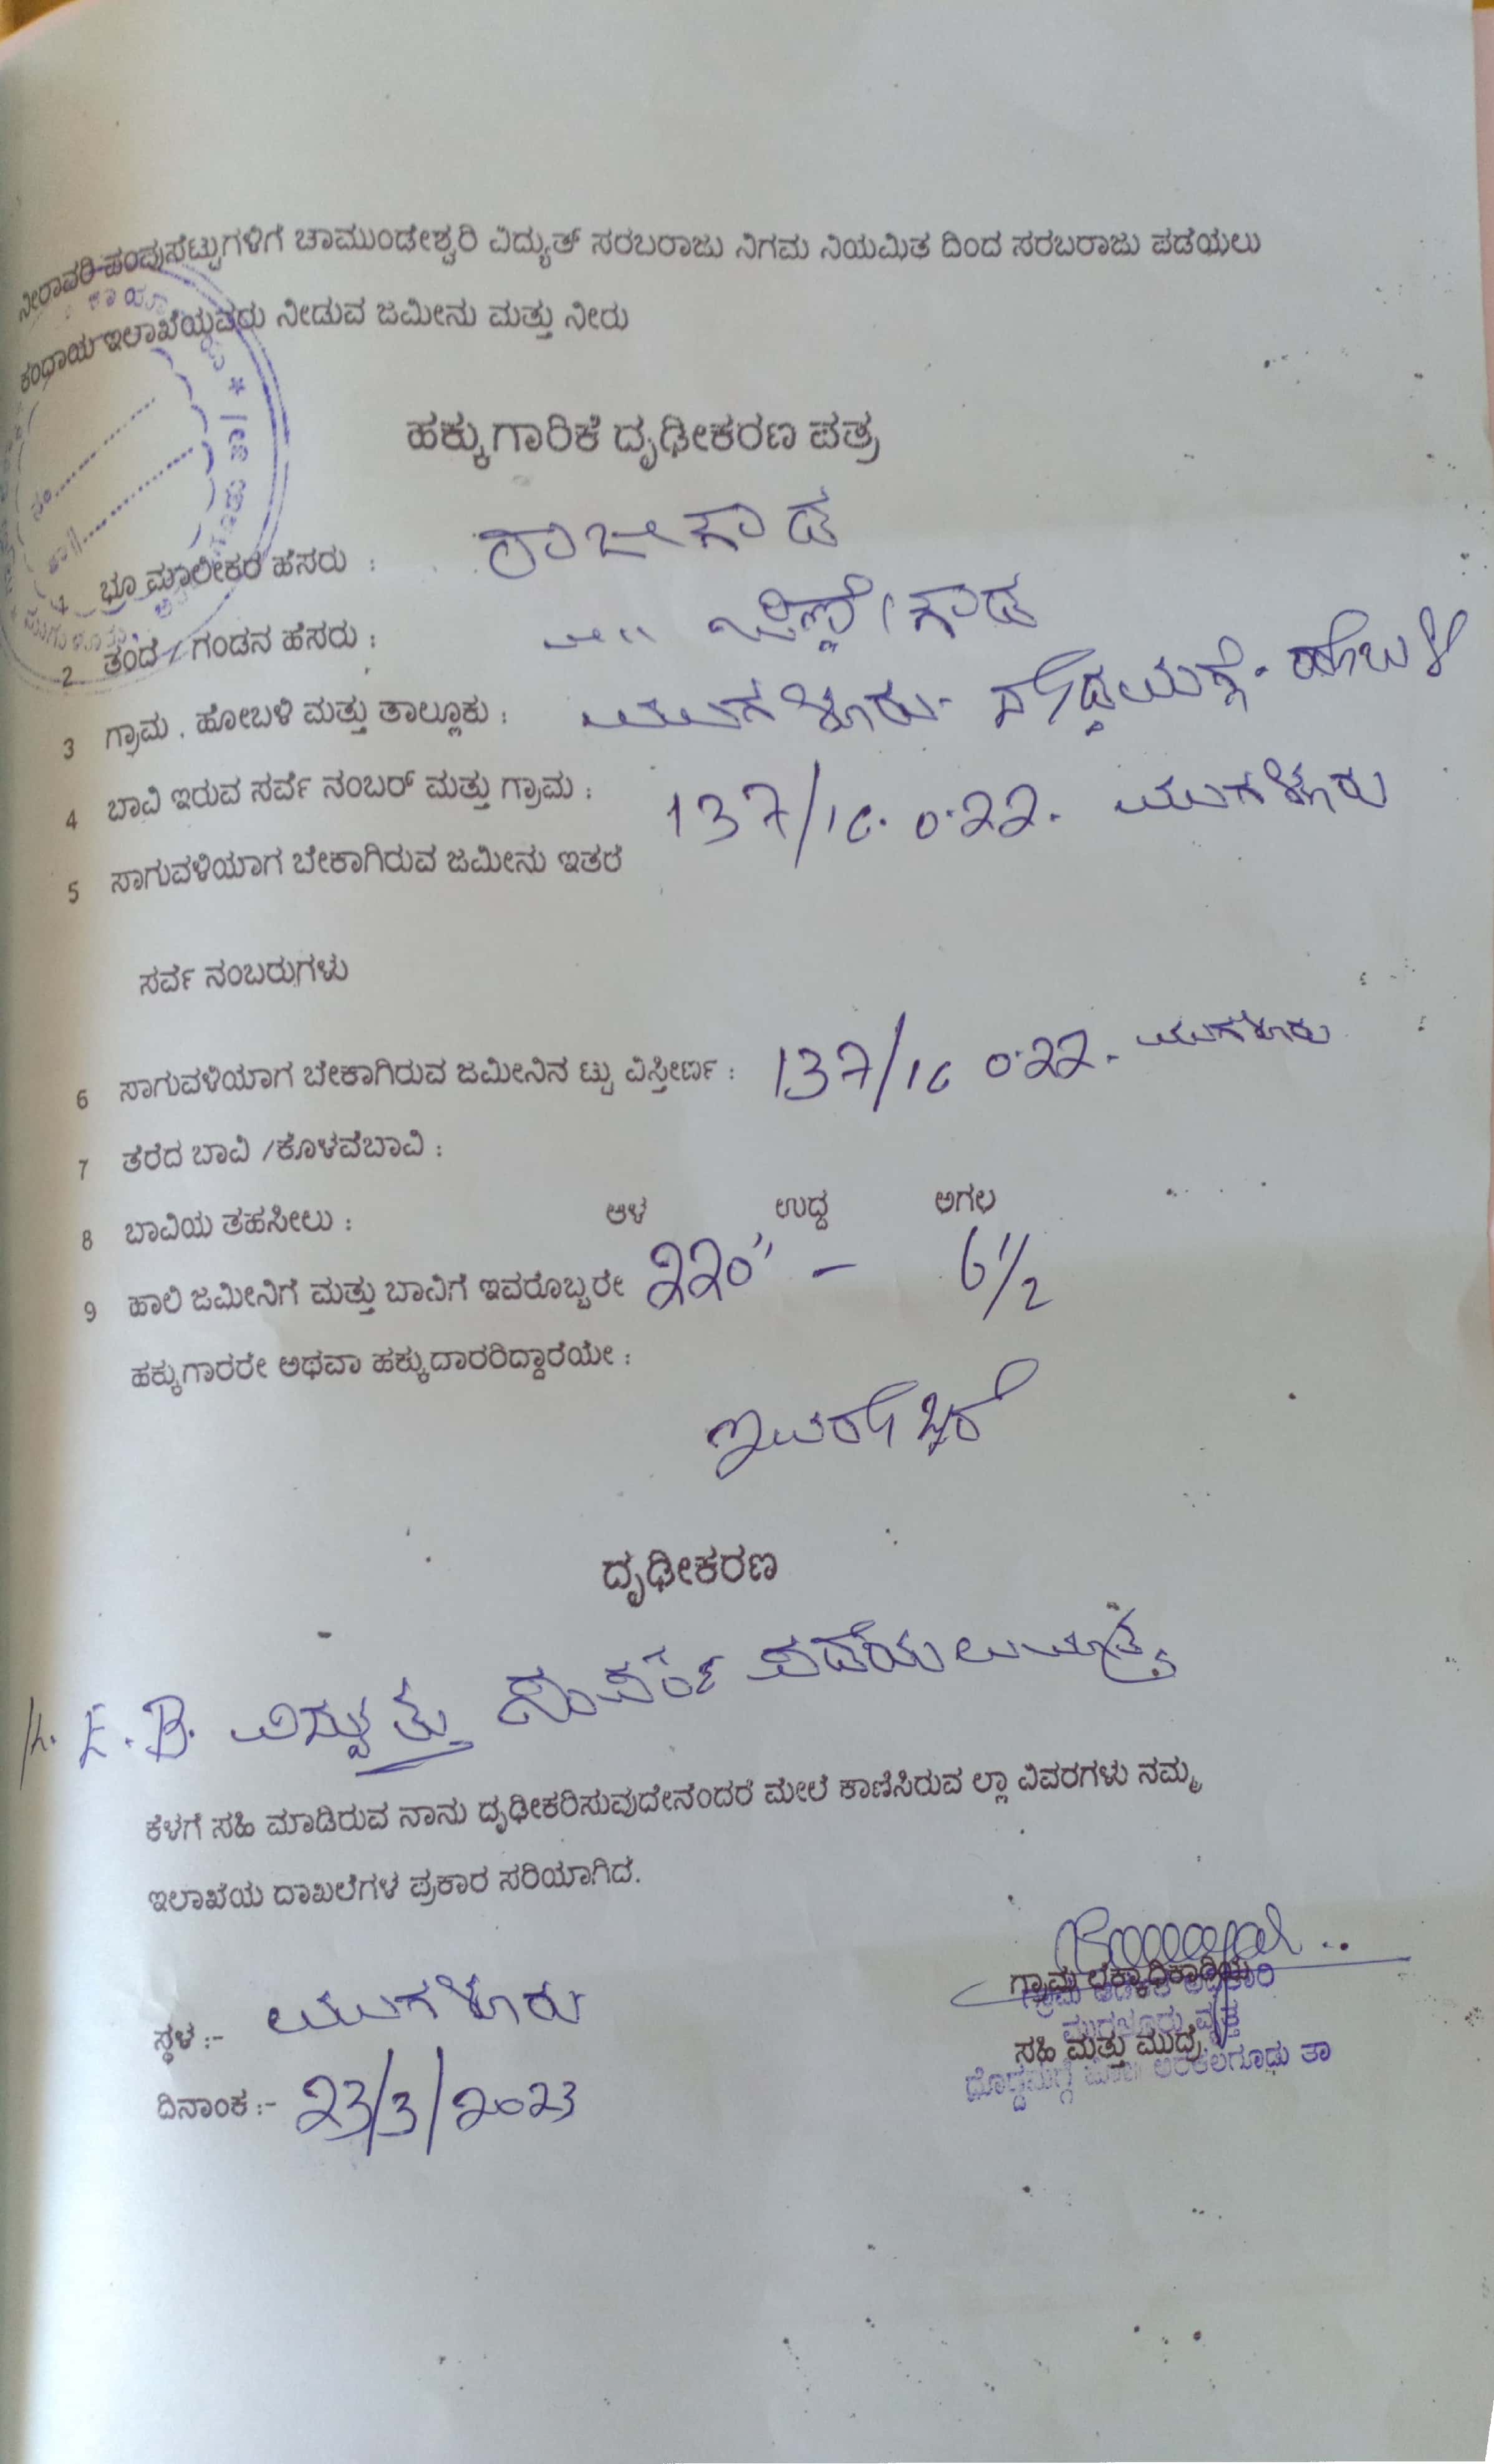 ನೀರಾವರಿ ಪಂಪುಸೆಟ್ಟುಗಳಿಗೆ ಚಾಮುಂಡೇಶ್ವರಿ ವಿದ್ಯುತ್ ಸರಬರಾಜು ನಿಗಮ ನಿಯಮಿತ ದಿಂದ ಸರಬರಾಜು ಪಡೆಯಲು
ಕಂಧಾಯ ಇಲಾಖೆಯವರು ನೀಡುವ ಜಮೀನು ಮತ್ತು ನೀರು
ಹಕ್ಕುಗಾರಿಕೆ ದೃಢೀಕರಣ ಪತ್ರ
1 ಭೂ ಮಾಲೀಕರ ಹೆಸರು : ರಾಜೇಗೌಡ
2 ತಂದೆ / ಗಂಡನ ಹೆಸರು : ಗೌಡ
3 ಗ್ರಾಮ , ಹೋಬಳಿ ಮತ್ತು ತಾಲ್ಲೂಕು : ಮುಗಳೂರು- ದೊಡ್ಡಮಗ್ಗೆ- ಹೋಬಳಿ
4 ಬಾವಿ ಇರುವ ಸರ್ವೆ ನಂಬರ್ ಮತ್ತು ಗ್ರಾಮ : 137/1C. 0.22. ಮುಗಳೂರು
5 ಸಾಗುವಳಿಯಾಗ ಬೇಕಾಗಿರುವ ಜಮೀನು ಇತರೆ
ಸರ್ವೆ ನಂಬರುಗಳು
6 ಸಾಗುವಳಿಯಾಗ ಬೇಕಾಗಿರುವ ಜಮೀನಿನ ಟ್ಟು ವಿಸ್ತೀರ್ಣ : 137/1C 0.22. ಮುಗಳೂರು
7 ತೆರೆದ ಬಾವಿ /ಕೊಳವೆಬಾವಿ :
8 ಬಾವಿಯ ತಹಸೀಲು : ಆಳ ಉದ್ದ ಅಗಲ
9 ಹಾಲಿ ಜಮೀನಿಗೆ ಮತ್ತು ಬಾವಿಗೆ ಇವರೊಬ್ಬರೇ 220'' - 6 1/2
ಹಕ್ಕುಗಾರರೇ ಅಥವಾ ಹಕ್ಕುದಾರರಿದ್ದಾರೆಯೇ :
ಇವರೊಬ್ಬರೆ
ದೃಢೀಕರಣ
E.B. ವಿದ್ಯುತ್ತು ಪಡೆಯಲು ಮಾತ್ರ
ಕೆಳಗೆ ಸಹಿ ಮಾಡಿರುವ ನಾನು ದೃಢೀಕರಿಸುವುದೇನೆಂದರೆ ಮೇಲೆ ಕಾಣಿಸಿರುವ ಲ್ಲಾ ವಿವರಗಳು ನಮ್ಮ
ಇಲಾಖೆಯ ದಾಖಲೆಗಳ ಪ್ರಕಾರ ಸರಿಯಾಗಿದೆ.
ಗ್ರಾಮ ಲೆಕ್ಕಾಧಿಕಾರಿಯ
ಗ್ರಾಮ ಆಡಳಿತ ಅಧಿಕಾರಿ
ಸ್ಥಳ :- ಮುಗಳೂರು
ಮುಗಳೂರು ವೃತ್ತ
ಸಹಿ ಮತ್ತು ಮುದ್ರೆ
ದೊಡ್ಡಮಗ್ಗೆ ಹೋ॥ ಅರಕಲಗೂಡು ತಾ
ದಿನಾಂಕ :- 23/3/2023